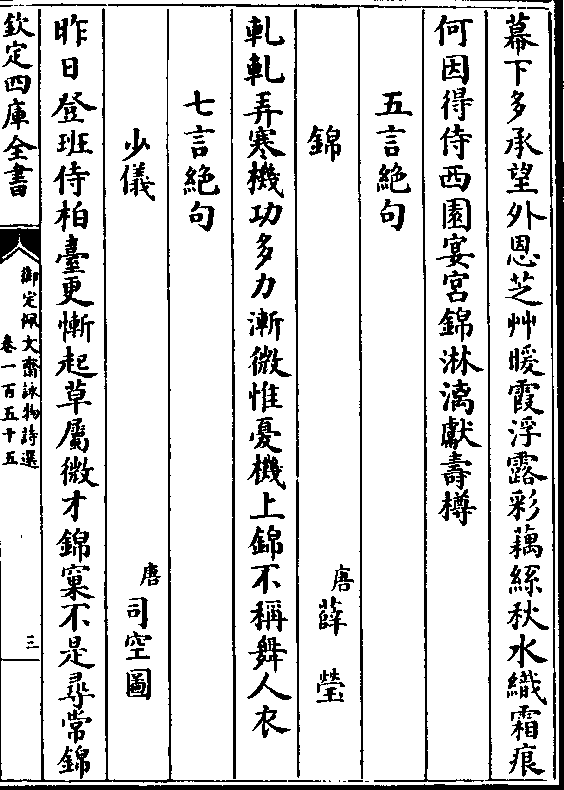 幕下多承望外恩芝艸暖霞浮露彩藕絲秋水織霜痕
何因得侍西園宴宮錦淋漓獻壽樽
五言絶句
錦
唐薛瑩
軋軋弄寒機功多力漸微惟憂機上錦不稱舞人衣
七言絶句
少儀
唐司空圖
昨日登班侍柏臺更慚起草屬微才錦窠不是尋常錦
欽定四庫全書
御定佩文齋詠物詩選
卷一百五十五
三